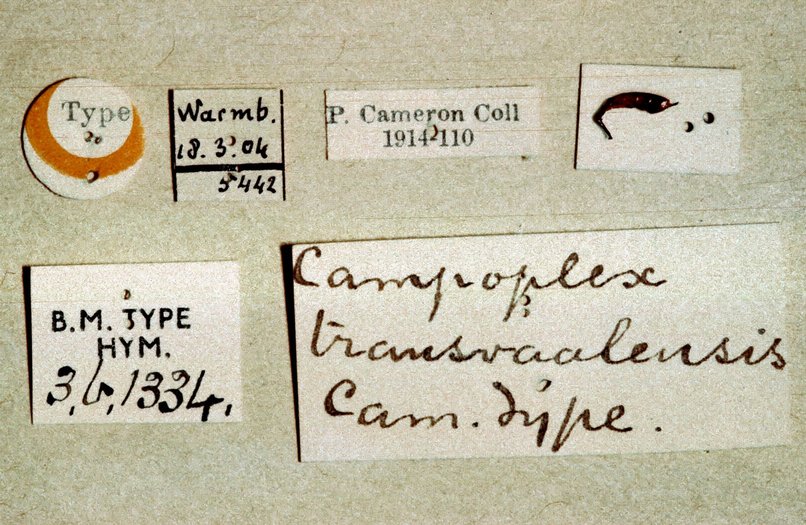 Type
Warmb.
18.3.04
5442
P. Cameron Coll
1914-110
B.M. TYPE
HYM.
3,b,1334.
Campoplex
transvaalensis
Cam. Type.